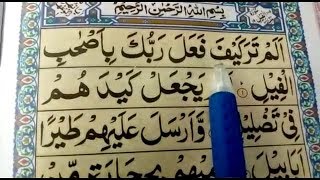 بِسْمِ اللهِ الرَّحْمٰنِ الرَّحِيْمِ
اَلَمْ تَرَ كَيْفَ فَعَلَ رَبُّكَ بِاَصْحٰبِ
الْفِيْلِ ١ يَجْعَلْ كَيْدَهُمْ
فِيْ تَضْلِيْلٍ وَّاَرْسَلَ عَلَيْهِمْ طَيْرًا
اَبَابِيْلَ بِحِجَارَةٍ مِّنْ